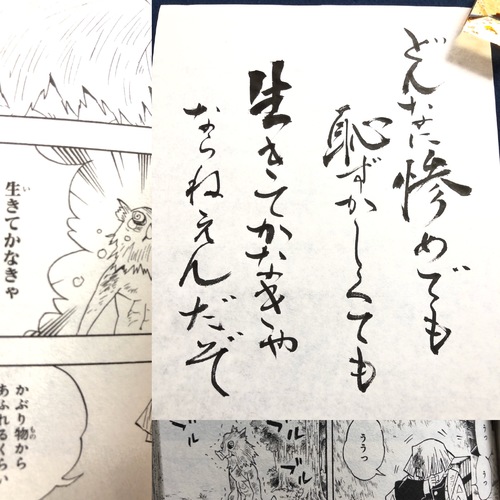 どんなに惨めでも
恥ずかしくても
生きてかなきゃ
ならねえんだぞ
生きてかなきゃ
い
かぶり物から
もの
あふれるくらい
ブル
ブル
ううっ
ううっ